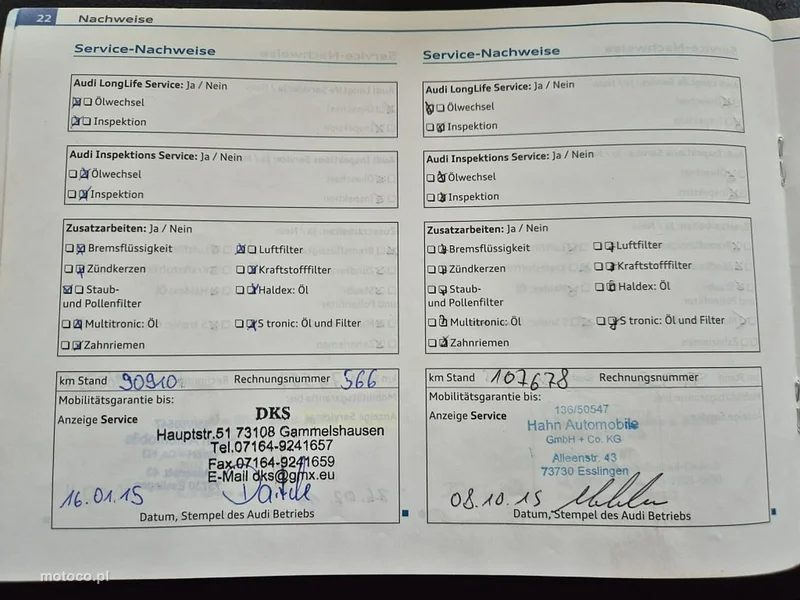 22 Nachweise
Service-Nachweise
Audi LongLife Service: Ja / Nein
Ölwechsel
Inspektion
Audi Inspektions Service: Ja / Nein
Ölwechsel
Inspektion
Zusatzarbeiten: Ja / Nein
Bremsflüssigkeit Luftfilter
Zündkerzen Kraftstofffilter
Staub- Haldex: Öl
und Pollenfilter
Multitronic: Öl S tronic: Öl und Filter
Zahnriemen
km Stand 90910 Rechnungsnummer 566
Mobilitätsgarantie bis:
Anzeige Service
DKS
Hauptstr.51 73108 Gammelshausen
Tel.07164-9241657
Fax.07164-9241659
E-Mail dks@gmx.eu
16.01.15
Datum, Stempel des Audi Betriebs
Service-Nachweise
Audi LongLife Service: Ja / Nein
Ölwechsel
Inspektion
Audi Inspektions Service: Ja / Nein
Ölwechsel
Inspektion
Zusatzarbeiten: Ja / Nein
Bremsflüssigkeit Luftfilter
Zündkerzen Kraftstofffilter
Staub- Haldex: Öl
und Pollenfilter
Multitronic: Öl S tronic: Öl und Filter
Zahnriemen
km Stand 107678 Rechnungsnummer
Mobilitätsgarantie bis:
Anzeige Service
136/50547
Hahn Automobile
GmbH + Co. KG
Alleenstr. 43
73730 Esslingen
08.10.15
Datum, Stempel des Audi Betriebs
motoco.pl